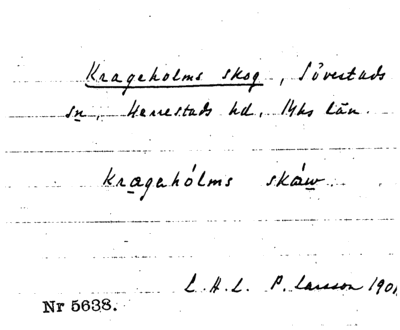 Krageholms skog, Sövestads
sn, Herrestads hd, Mhs län.
Kragahólms skáw
L.H.L. P. Larsson 1901
Nr 5638.